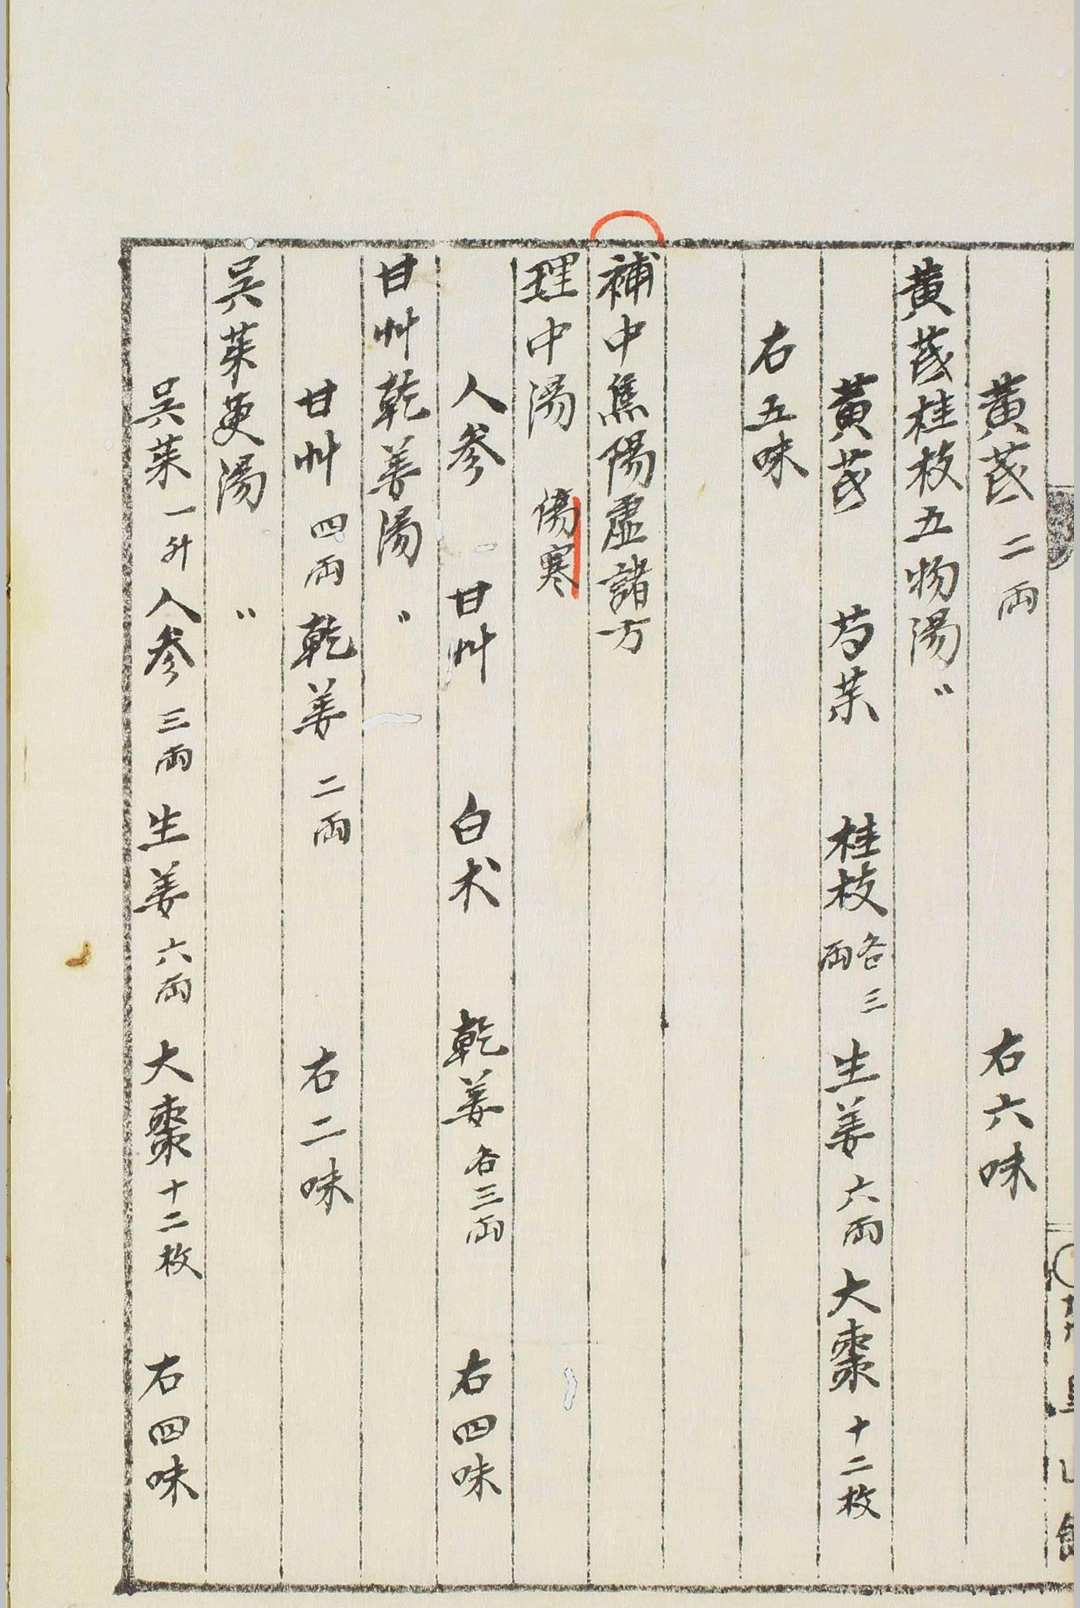 黄芪二两　右六味
黄芪桂枝五物湯〃
黄芪　芍薬　桂枝各三两　生姜六两　大棗十二枚
右五味
補中焦陽虚諸方
理中湯　傷寒
人参　甘艸　白术　乾姜各三两　右四味
甘艸乾姜湯〃
甘艸四两　乾姜二两　右二味
呉茱萸湯〃
呉茱一升　人参三两　生姜六两　大棗十二枚　右四味